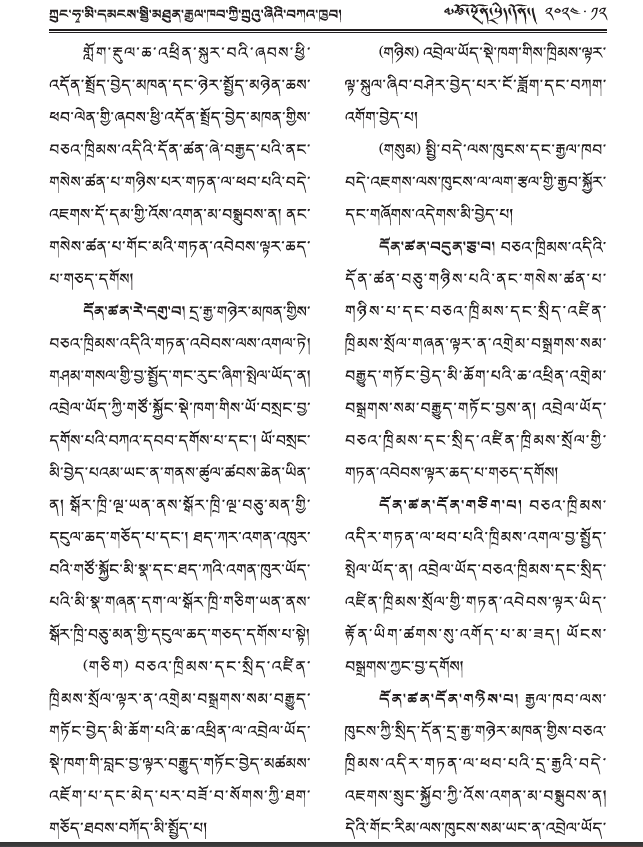 ཀྲུང་ཧྭ་མི་དམངས་སྤྱི་མཐུན་རྒྱལ་ཁབ་ཀྱི་ཀྲུའུ་ཞིའི་བཀའ་ཁྱབ། ༢༠༢༤ · ༡༢
གློག་རྡུལ་ཆ་འཕྲིན་སྐུར་བའི་ཞབས་ཕྱི་
འདོན་སྤྲོད་བྱེད་མཁན་དང་ཉེར་སྤྱོད་མཉེན་ཆས་
ཕབ་ལེན་གྱི་ཞབས་ཕྱི་འདོན་སྤྲོད་བྱེད་མཁན་གྱིས་
བཅའ་ཁྲིམས་འདིའི་དོན་ཚན་ཞེ་བརྒྱད་པའི་ནང་
གསེས་ཚན་པ་གཉིས་པར་གཏན་ལ་ཕབ་པའི་བདེ་
འཇགས་དོ་དམ་གྱི་འོས་འགན་མ་བསྒྲུབས་ན། ནང་
གསེས་ཚན་པ་གོང་མའི་གཏན་འབེབས་ལྟར་ཆད་
པ་གཅད་དགོས།
དོན་ཚན་རེ་དགུ་བ། དྲ་རྒྱ་གཉེར་མཁན་གྱིས་
བཅའ་ཁྲིམས་འདིའི་གཏན་འབེབས་ལས་འགལ་ཏེ།
གཤམ་གསལ་གྱི་བྱ་སྤྱོད་གང་རུང་ཞིག་སྤེལ་ཡོད་ན།
འབྲེལ་ཡོད་ཀྱི་གཙོ་སྐྱོང་སྡེ་ཁག་གིས་ཡོ་བསྲང་བྱ་
དགོས་པའི་བཀའ་དབབ་དགོས་པ་དང་། ཡོ་བསྲང་
མི་བྱེད་པའམ་ཡང་ན་གནས་ཚུལ་ཚབས་ཆེན་ཡིན་
ན། སྒོར་ཁྲི་ལྔ་ཡན་ནས་སྒོར་ཁྲི་ལྔ་བཅུ་མན་གྱི་
དངུལ་ཆད་གཅོད་པ་དང་། ཐད་ཀར་འགན་འཁུར་
བའི་གཙོ་སྐྱོང་མི་སྣ་དང་ཐད་ཀའི་འགན་ཁུར་ཡོད་
པའི་མི་སྣ་གཞན་དག་ལ་སྒོར་ཁྲི་གཅིག་ཡན་ནས་
སྒོར་ཁྲི་བཅུ་མན་གྱི་དངུལ་ཆད་གཅད་དགོས་པ་སྟེ།
(གཅིག) བཅའ་ཁྲིམས་དང་སྲིད་འཛིན་
ཁྲིམས་སྲོལ་ལྟར་ན་འགྲེམ་བསྒྲགས་སམ་བརྒྱུད་
གཏོང་བྱེད་མི་ཆོག་པའི་ཆ་འཕྲིན་ལ་འབྲེལ་ཡོད་
སྡེ་ཁག་གི་བླང་བྱ་ལྟར་བརྒྱུད་གཏོང་བྱེད་མཚམས་
འཇོག་པ་དང་མེད་པར་བཟོ་བ་སོགས་ཀྱི་ཐག་
གཅོད་ཐབས་བཀོད་མི་སྤྱོད་པ།
(གཉིས) འབྲེལ་ཡོད་སྡེ་ཁག་གིས་ཁྲིམས་ལྟར་
ལྟ་སྐུལ་ཞིབ་བཤེར་བྱེད་པར་ངོ་རྒོལ་དང་བཀག་
འགོག་བྱེད་པ།
(གསུམ) སྤྱི་བདེ་ལས་ཁུངས་དང་རྒྱལ་ཁབ་
བདེ་འཇགས་ལས་ཁུངས་ལ་ལག་རྩལ་གྱི་རྒྱབ་སྐྱོར་
དང་གཞོགས་འདེགས་མི་བྱེད་པ།
དོན་ཚན་བདུན་ཅུ་བ། བཅའ་ཁྲིམས་འདིའི་
དོན་ཚན་བཅུ་གཉིས་པའི་ནང་གསེས་ཚན་པ་
གཉིས་པ་དང་བཅའ་ཁྲིམས་དང་སྲིད་འཛིན་
ཁྲིམས་སྲོལ་གཞན་ལྟར་ན་འགྲེམ་བསྒྲགས་སམ་
བརྒྱུད་གཏོང་བྱེད་མི་ཆོག་པའི་ཆ་འཕྲིན་འགྲེམ་
བསྒྲགས་སམ་བརྒྱུད་གཏོང་བྱས་ན། འབྲེལ་ཡོད་
བཅའ་ཁྲིམས་དང་སྲིད་འཛིན་ཁྲིམས་སྲོལ་གྱི་
གཏན་འབེབས་ལྟར་ཆད་པ་གཅད་དགོས།
དོན་ཚན་དོན་གཅིག་པ། བཅའ་ཁྲིམས་
འདིར་གཏན་ལ་ཕབ་པའི་ཁྲིམས་འགལ་བྱ་སྤྱོད་
སྤེལ་ཡོད་ན། འབྲེལ་ཡོད་བཅའ་ཁྲིམས་དང་སྲིད་
འཛིན་ཁྲིམས་སྲོལ་གྱི་གཏན་འབེབས་ལྟར་ཡིད་
རྟོན་ཡིག་ཚགས་སུ་འགོད་པ་མ་ཟད། ཡོངས་
བསྒྲགས་ཀྱང་བྱ་དགོས།
དོན་ཚན་དོན་གཉིས་པ། རྒྱལ་ཁབ་ལས་
ཁུངས་ཀྱི་སྲིད་དོན་དྲ་རྒྱ་གཉེར་མཁན་གྱིས་བཅའ་
ཁྲིམས་འདིར་གཏན་ལ་ཕབ་པའི་དྲ་རྒྱའི་བདེ་
འཇགས་སྲུང་སྐྱོབ་ཀྱི་འོས་འགན་མ་བསྒྲུབས་ན།
དེའི་གོང་རིམ་ལས་ཁུངས་སམ་ཡང་ན་འབྲེལ་ཡོད་